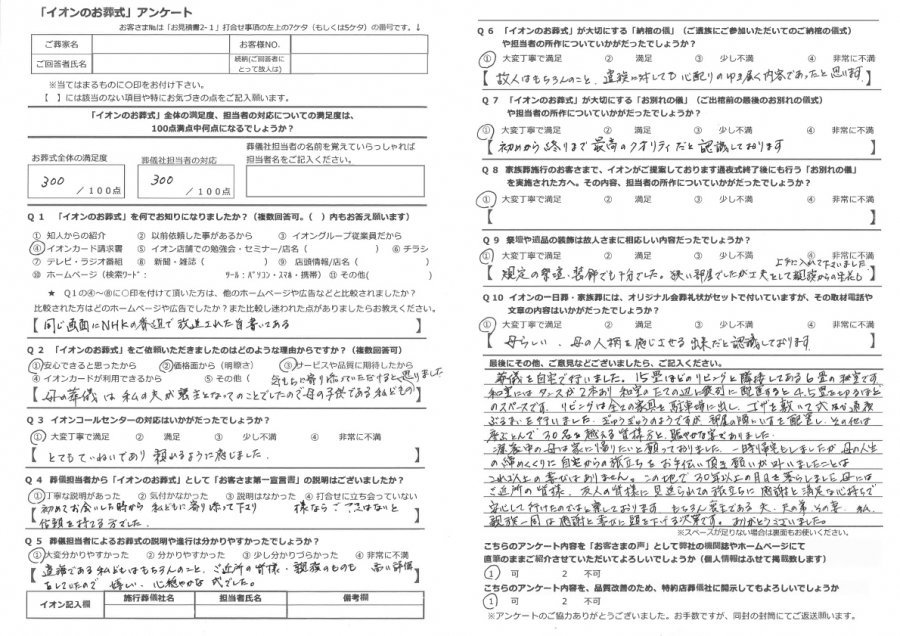 「イオンのお葬式」アンケート
お客さま№は「お見積書2-1」打合せ事項の左上の7ケタ（もしくは5ケタ）の番号です。↓
ご葬家名
お客様NO.
ご回答者氏名
続柄(ご回答者にとって故人は)
※当てはまるものに○印をお付け下さい。
【　】には該当のない項目や特にお気づきの点をご記入願います。
「イオンのお葬式」全体の満足度、担当者の対応についての満足度は、
100点満点中何点になるでしょうか？
お葬式全体の満足度
葬儀社担当者の対応
葬儀社担当者の名前を覚えていらっしゃれば
担当者名をご記入ください。
300 / 100点
300 / 100点
Q 1　「イオンのお葬式」を何でお知りになりましたか？（複数回答可。(　) 内もお答え願います）
① 知人からの紹介　② 以前依頼した事があるから　③ イオングループ従業員だから
④イオンカード請求書　⑤ イオン店舗での勉強会・セミナー/店名 (　　) ⑥ チラシ
⑦ テレビ・ラジオ番組　⑧ 新聞・雑誌 (　　)　⑨ 店頭情報/店名 (　　)
⑩ ホームページ（検索ﾜｰﾄﾞ：　　ﾂｰﾙ：ﾊﾟｿｺﾝ・ｽﾏﾎ・携帯）⑪ その他(　　)
★ Q1の④～⑧に○印を付けて頂いた方は、他のホームページや広告などと比較されましたか？
比較された方はどのホームページや広告でしたか？また比較し迷われた点がありましたらお教えください。
【同じ画面にNHKの番組で放送された旨書いてある】
Q 2　「イオンのお葬式」をご依頼いただきましたのはどのような理由からですか？（複数回答可）
①安心できると思ったから　②価格面から（明瞭さ）　③サービスや品質に期待したから
④ イオンカードが利用できるから　⑤ その他（気もちに寄り添っていただけると思いました
【母の葬儀は私の夫が喪主となってのことでしたので母の子供である私どもの】
Q 3　イオンコールセンターの対応はいかがだったでしょうか？
① 大変丁寧で満足　②　満足　③　少し不満　④　非常に不満
【とてもていねいであり 頼めるように感じました。】
Q 4　葬儀担当者から「イオンのお葬式」として「お客さま第一宣言書」の説明はございましたか？
①丁寧な説明があった　② 気付かなかった　③ 説明はなかった　④ 打合せに立ち会っていない
【初めてお会いした時から 私どもに寄り添って下さり 様ならご心配はないと
信頼を持てる方でした。】
Q 5　葬儀担当者によるお葬式の説明や進行は分かりやすかったでしょうか？
①大変分かりやすかった　② 分かりやすかった　③ 少し分かりづらかった　④ 非常に不満
【遺族である私どもはもちろんのこと、ご近所の皆様・親族のものも 高い評価
をしていたので 嬉しい、心穏やかな式でした。】
イオン記入欄
施行葬儀社名
担当者氏名
備考欄
Q 6　「イオンのお葬式」が大切にする「納棺の儀」（ご遺族にご参加いただいてのご納棺の儀式）
や担当者の所作についていかがだったでしょうか？
① 大変丁寧で満足　②　満足　③　少し不満　④　非常に不満
【故人はもちろんのこと、遺族に対しても 心配りのゆき届く内容であったと思います。】
Q 7　「イオンのお葬式」が大切にする「お別れの儀」（ご出棺前の最後のお別れの儀式）
や担当者の所作についていかがだったでしょうか？
① 大変丁寧で満足　②　満足　③　少し不満　④　非常に不満
【初めから終りまで 最高のクオリティだと認識しております】
Q 8　家族葬施行のお客さまで、イオンがご提案しております通夜式終了後にも行う「お別れの儀」
を実施された方へ。その内容、担当者の所作についていかがだったでしょうか？
① 大変丁寧で満足　②　満足　③　少し不満　④　非常に不満
【　】
Q 9　祭壇や遺品の装飾は故人さまに相応しい内容だったでしょうか？
① 大変丁寧で満足　②　満足　③　少し不満　④　非常に不満
上手に入れて下さいました
【規定の祭壇、装飾でも十分でした。狭い部屋でしたが工夫をして親族からの生花も】
Q 10　イオンの一日葬・家族葬には、オリジナル会葬礼状がセットで付いていますが、その取材電話や
文章の内容はいかがだったでしょうか？
① 大変丁寧で満足　②　満足　③　少し不満　④　非常に不満
【母らしい、母の人柄を感じさせる出来だと認識しております】
最後にその他、ご意見などございましたら、ご記入ください。
葬儀を自宅で行いました。15畳ほどのリビングと隣接してある6畳の和室です。
和室にはタンスが2本あり
のスペースです。リビングは全ての家具を駐車場に出し、ゴザを敷いて式及び通夜
ぶるまいを行いました。ぎゅうぎゅうのようですが、部屋の隅にいすを配置し、その他は
座ぶとんで30名を越える皆様方と、賑やかな宴でありました。
母は家に帰りたいと願っておりました。一時帰宅もしましたが母の人生
の締めくくりに自宅からの旅立ちをお手伝い頂き願いが叶いましたことは
これ以上の幸せはありません。この地で30年以上の月日を暮らしました母には
ご近所の皆様、友人の皆様に見送られての旅立ちに感謝と満足な心持ちで
安心して行けたのではと察しております。もちろん喪主である夫、夫の弟、その妻、私、
親族一同は感謝と幸せに頭を下げる次第です。ありがとうございました。
※スペースが足りない場合は裏面もお使いください。
こちらのアンケート内容を「お客さまの声」として弊社の機関誌やホームページにて
直筆のままご紹介させていただいてよろしいでしょうか（個人情報はふせて掲載致します）
1　可　2　不可
こちらのアンケート内容を、品質改善のため、特約店葬儀社に開示してもよろしいでしょうか
1　可　2　不可
※アンケートのご協力ありがとうございました。お手数ですが、同封の封筒にてご返送願います。